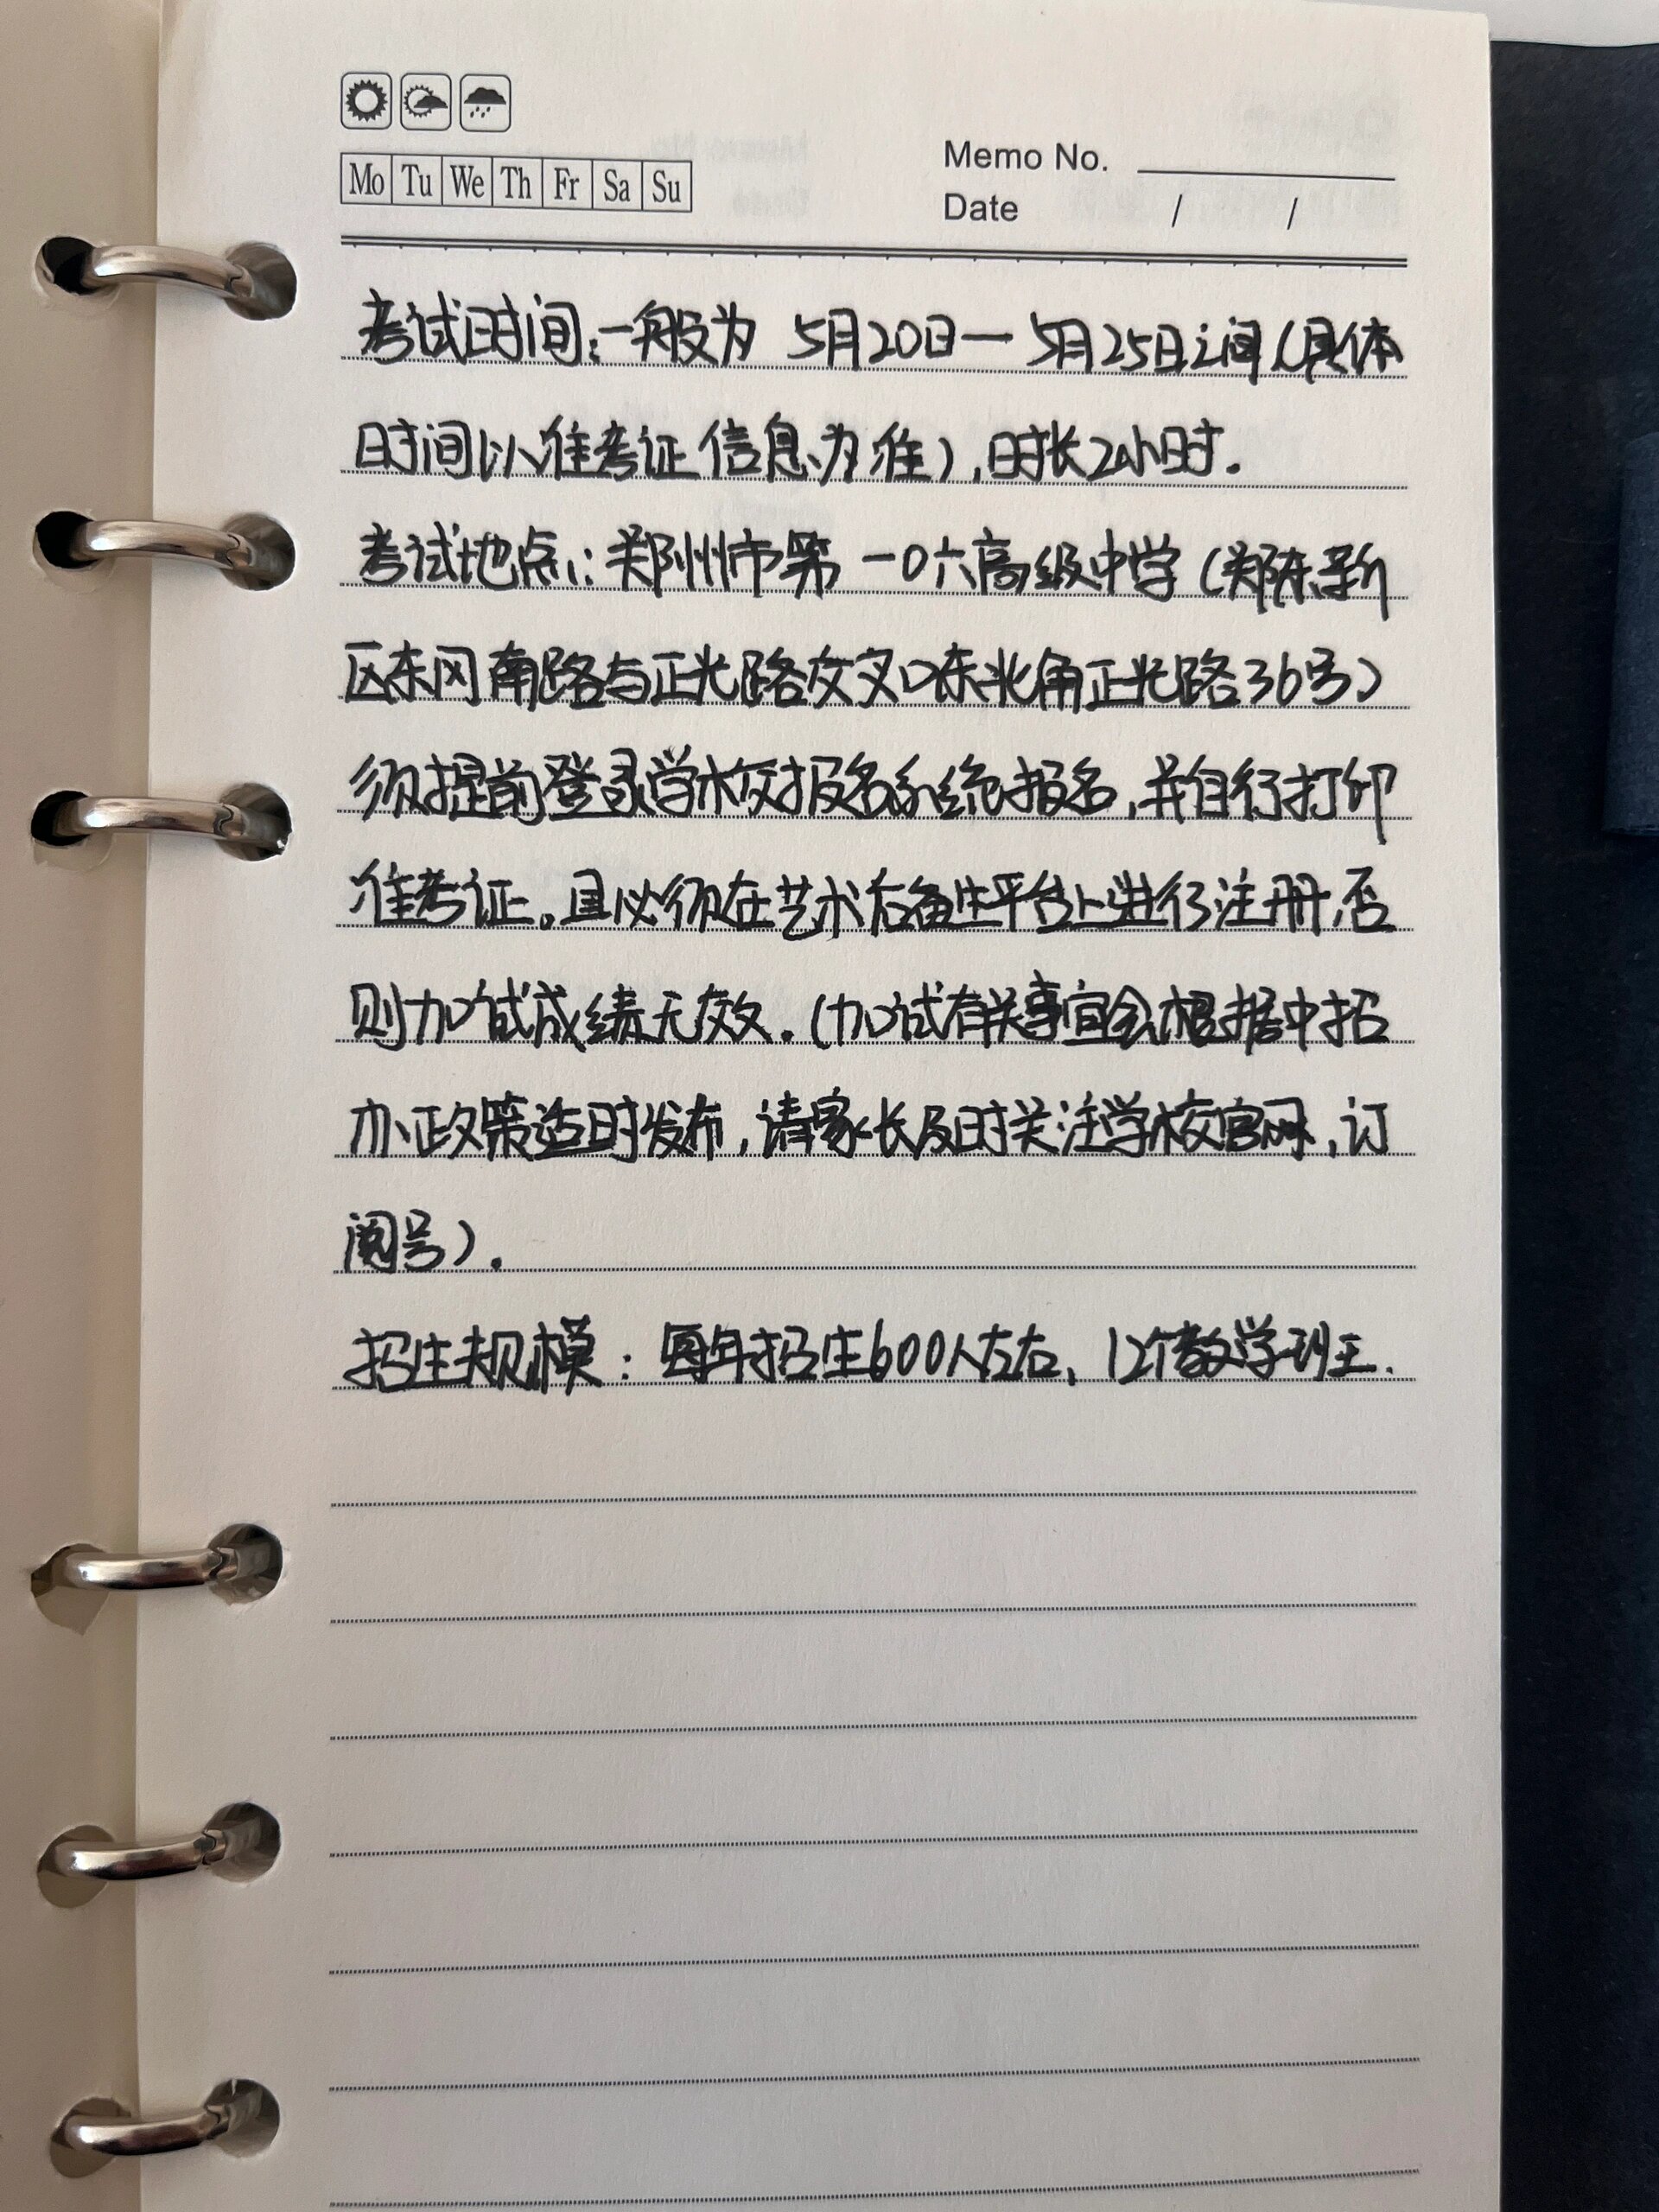 Mo Tu We Th Fr Sa Su
Memo No.
Date / /
考试时间:一般为 5月20日一5月25日之间(具体
时间以准考证信息为准),时长2小时.
考试地点:郑州市第一0六高级中学(郑东新
区东风南路与正光路交叉口东北角正光路36号)
须提前登录学校报名系统报名,并自行打印
准考证。且必须在艺术后备生平台上进行注册,否
则加试成绩无效.(加试有关事宜会根据中招
办政策适时发布,请家长及时关注学校官网,订
阅号).
招生规模:每年招生600人左右,12个教学班.